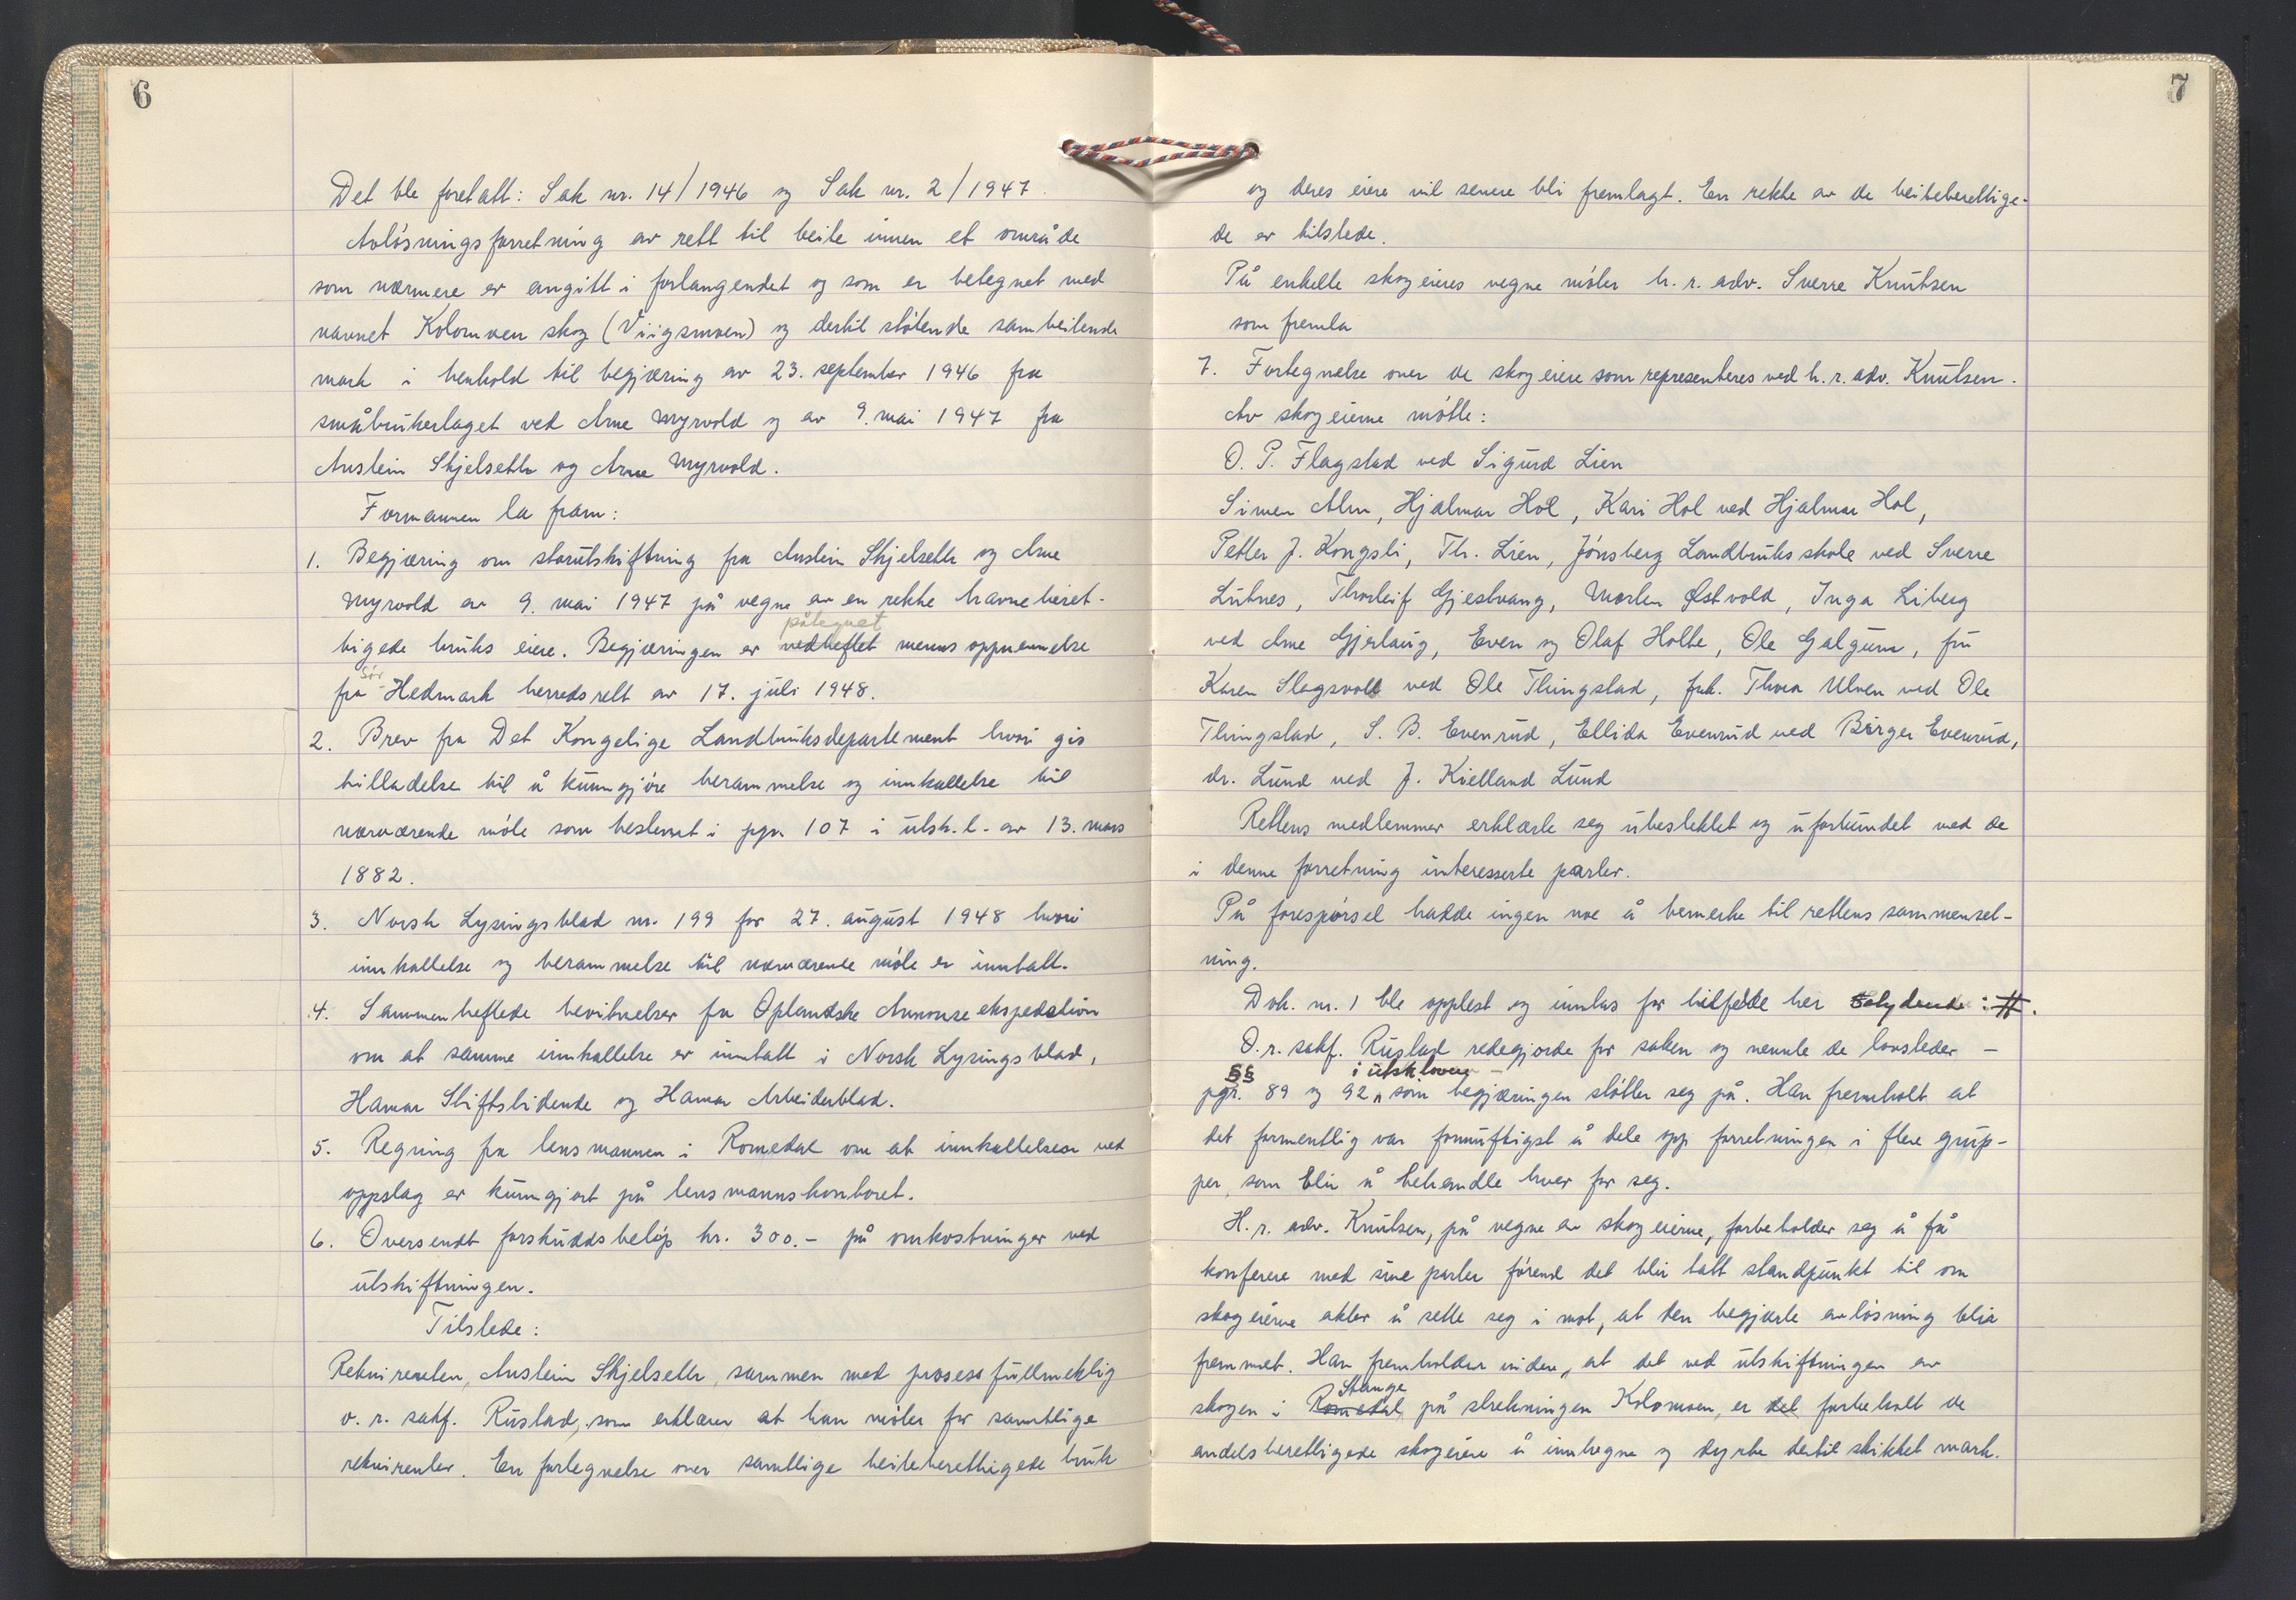 6
Det ble foretatt: Sak nr. 14/1946 og Sak nr. 2/1947.
Avløsningsforretning av rett til beite innen et område
som nærmere er angitt i forlangendet og som er betegnet med
navnet Kolomoen skog (Viigsmoen) og dertil støtende sambeitende
mark i henhold til begjæring av 23. september 1946 fra
småbrukerlaget ved Arne Myrvold og av 9. mai 1947 fra
Anstein Skjelseth og Arne Myrvold.
Formannen la fram:
1. Begjæring om storutskiftning fra Anstein Skjelseth og Arne
Myrvold av 9. mai 1947 på vegne av en rekke havneberet-
påtegnet
tigede bruks eiere. Begjæringen er vedheftet menns oppnevnelse
Sør
fra Hedmark herredsrett av 17. juli 1948.
2. Brev fra Det Kongelige Landbruksdepartement hvori gis
tilladelse til å kunngjøre berammelse og innkallelse til
nærværende møte som bestemt i pgr. 107 i utsk.l. av 13. mars
1882.
3. Norsk Lysingsblad nr. 199 for 27. august 1948 hvori
innkallelse og berammelse til nærværende møte er inntatt.
4. Sammenheftede bevitnelser fra Oplandske Annonseekspedition
om at samme innkallelse er inntatt i Norsk Lysingsblad,
Hamar Stiftstidende og Hamar Arbeiderblad.
5. Regning fra lensmannen i Romedal om at innkallelsen ved
oppslag er kunngjort på lensmannskontoret.
6. Oversendt forskuddsbeløp kr. 300.- på omkostninger ved
utskiftningen.
Tilstede:
Rekvirenten, Anstein Skjelseth, sammen med prosessfullmektig
o.r. sakf. Rustad, som erklærer at han møter for samtlige
rekvirenter. En fortegnelse over samtlige beiteberettigede bruk
7
og deres eiere vil senere bli fremlagt. En rekke av de beiteberettige-
de er tilstede.
På enkelte skogeieres vegne møter h.r. adv. Sverre Knutsen
som fremla
7. Fortegnelse over de skogeiere som representeres ved h.r. adv. Knutsen.
Av skogeierne møtte:
O. P. Flagstad ved Sigurd Lien
Simen Alm, Hjalmar Hol, Kari Hol ved Hjalmar Hol,
Petter J. Kongsli, Th. Lien, Jønsberg Landbruksskole ved Sverre
Lutnes, Thorleif Gjestvang, Morten Østvold, Inga Liberg
ved Arne Gjerlaug, Even og Olaf Holte, Ole Galgum, fru
Karen Slagsvold ved Ole Thingstad, frk. Thora Ulven ved Ole
Thingstad, S. B. Evenrud, Ellida Evenrud ved Birger Evenrud,
dr. Lund ved J. Kielland Lund
Rettens medlemmer erklærte seg ubeslektet og uforbundet med de
i denne forretning interesserte parter.
På forespørsel hadde ingen noe å bemerke til rettens sammenset-
ning.
Dok. nr. 1 ble opplest og inntas for tilfelde her sålydende: #.
O.r. sakf. Rustad redegjorde for saken og nevnte de lovsteder –
§§ i utskloven –
pgr. 89 og 92, som begjæringen støtter seg på. Han fremholt at
det formentlig var fornuftigst å dele opp forretningen i flere grup-
per, som blir å behandle hver for seg.
H.r. adv. Knutsen, på vegne av skogeierne, forbeholder seg å få
konferere med sine parter førend det blir tatt standpunkt til om
skogeierne akter å sette seg i mot, at den begjærte avløsning blir
fremmet. Han fremholder videre, at det ved utskiftningen av
Stange
skogen i Romedal på strekningen Kolomoen, er det forbeholt de
andelsberettigede skogeiere å innhegne og dyrke dertil skikket mark.